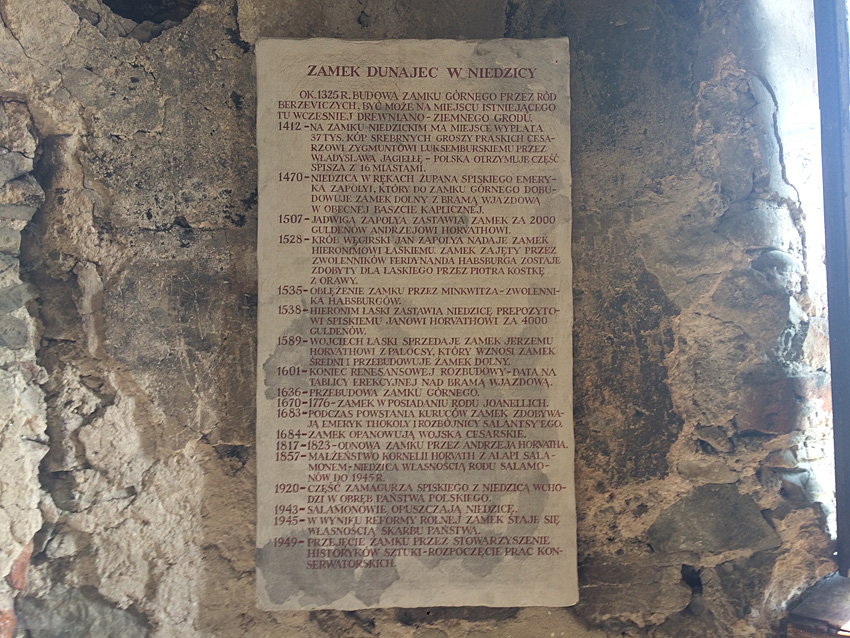 ZAMEK DUNAJEC W NIEDZICY
OK. 1325 R. BUDOWA ZAMKU GÓRNEGO PRZEZ RÓD
BERZEVICZYCH, BYĆ MOŻE NA MIEJSCU ISTNIEJĄCEGO
TU WCZEŚNIEJ DREWNIANO - ZIEMNEGO GRODU.
1412 - NA ZAMKU NIEDZICKIM MA MIEJSCE WYPŁATA
37 TYS. KÓP SREBRNYCH GROSZY PRASKICH CESA-
RZOWI ZYGMUNTOWI LUKSEMBURSKIEMU PRZEZ
WŁADYSŁAWA JAGIEŁŁĘ - POLSKA OTRZYMUJE CZĘŚĆ
SPISZA Z 16 MIASTAMI.
1470 - NIEDZICA W RĘKACH ŻUPANA SPISKIEGO EMERY-
KA ZAPOLYI, KTÓRY DO ZAMKU GÓRNEGO DOBU-
DOWUJE ZAMEK DOLNY Z BRAMĄ WJAZDOWĄ
W OBECNEJ BASZCIE KAPLICZNEJ.
1507 - JADWIGA ZAPOLYA ZASTAWIA ZAMEK ZA 2000
GULDENÓW ANDRZEJOWI HORVATHOWI.
1528 - KRÓL WĘGIRSKI JAN ZAPOLYA NADAJE ZAMEK
HIERONIMOWI ŁASKIEMU. ZAMEK ZAJĘTY PRZEZ
ZWOLENNIKÓW FERDYNANDA HABSBURGA ZOSTAJE
ZDOBYTY DLA ŁASKIEGO PRZEZ PIOTRA KOSTKĘ
Z ORAWY.
1535 - OBLĘŻENIE ZAMKU PRZEZ MINKWITZA - ZWOLENNI-
KA HABSBURGÓW.
1538 - HIERONIM ŁASKI ZASTAWIA NIEDZICĘ PREPOZYTO-
WI SPISKIEMU JANOWI HORVATHOWI ZA 4000
GULDENÓW.
1589 - WOJCIECH ŁASKI SPRZEDAJE ZAMEK JERZEMU
HORVATHOWI Z PALOCSY, KTÓRY WZNOSI ZAMEK
ŚREDNI I PRZEBUDOWUJE ZAMEK DOLNY.
1601 - KONIEC RENESANSOWEJ ROZBUDOWY - DATA NA
TABLICY EREKCYJNEJ NAD BRAMĄ WJAZDOWĄ.
1636 - PRZEBUDOWA ZAMKU GÓRNEGO.
1670 - 1776 - ZAMEK W POSIADANIU RODU JOANELLICH.
1683 - PODCZAS POWSTANIA KURUCÓW ZAMEK ZDOBYWA-
JĄ EMERYK THOKOLY I ROZBÓJNICY SALANTSY'EGO.
1684 - ZAMEK OPANOWUJĄ WOJSKA CESARSKIE.
1817 - 1823 - ODNOWA ZAMKU PRZEZ ANDRZEJA HORVATHA.
1857 - MAŁŻEŃSTWO KORNELII HORVATH Z ALAPI SALA-
MONEM - NIEDZICA WŁASNOŚCIĄ RODU SALAMO-
NÓW DO 1945 R.
1920 - CZĘŚĆ ZAMAGURZA SPISKIEGO Z NIEDZICĄ WCHO-
DZI W OBRĘB PAŃSTWA POLSKIEGO.
1943 - SALAMONOWIE OPUSZCZAJĄ NIEDZICĘ.
1945 - W WYNIKU REFORMY ROLNEJ ZAMEK STAJE SIĘ
WŁASNOŚCIĄ SKARBU PAŃSTWA.
1949 - PRZEJĘCIE ZAMKU PRZEZ STOWARZYSZENIE
HISTORYKÓW SZTUKI - ROZPOCZĘCIE PRAC KON-
SERWATORSKICH.